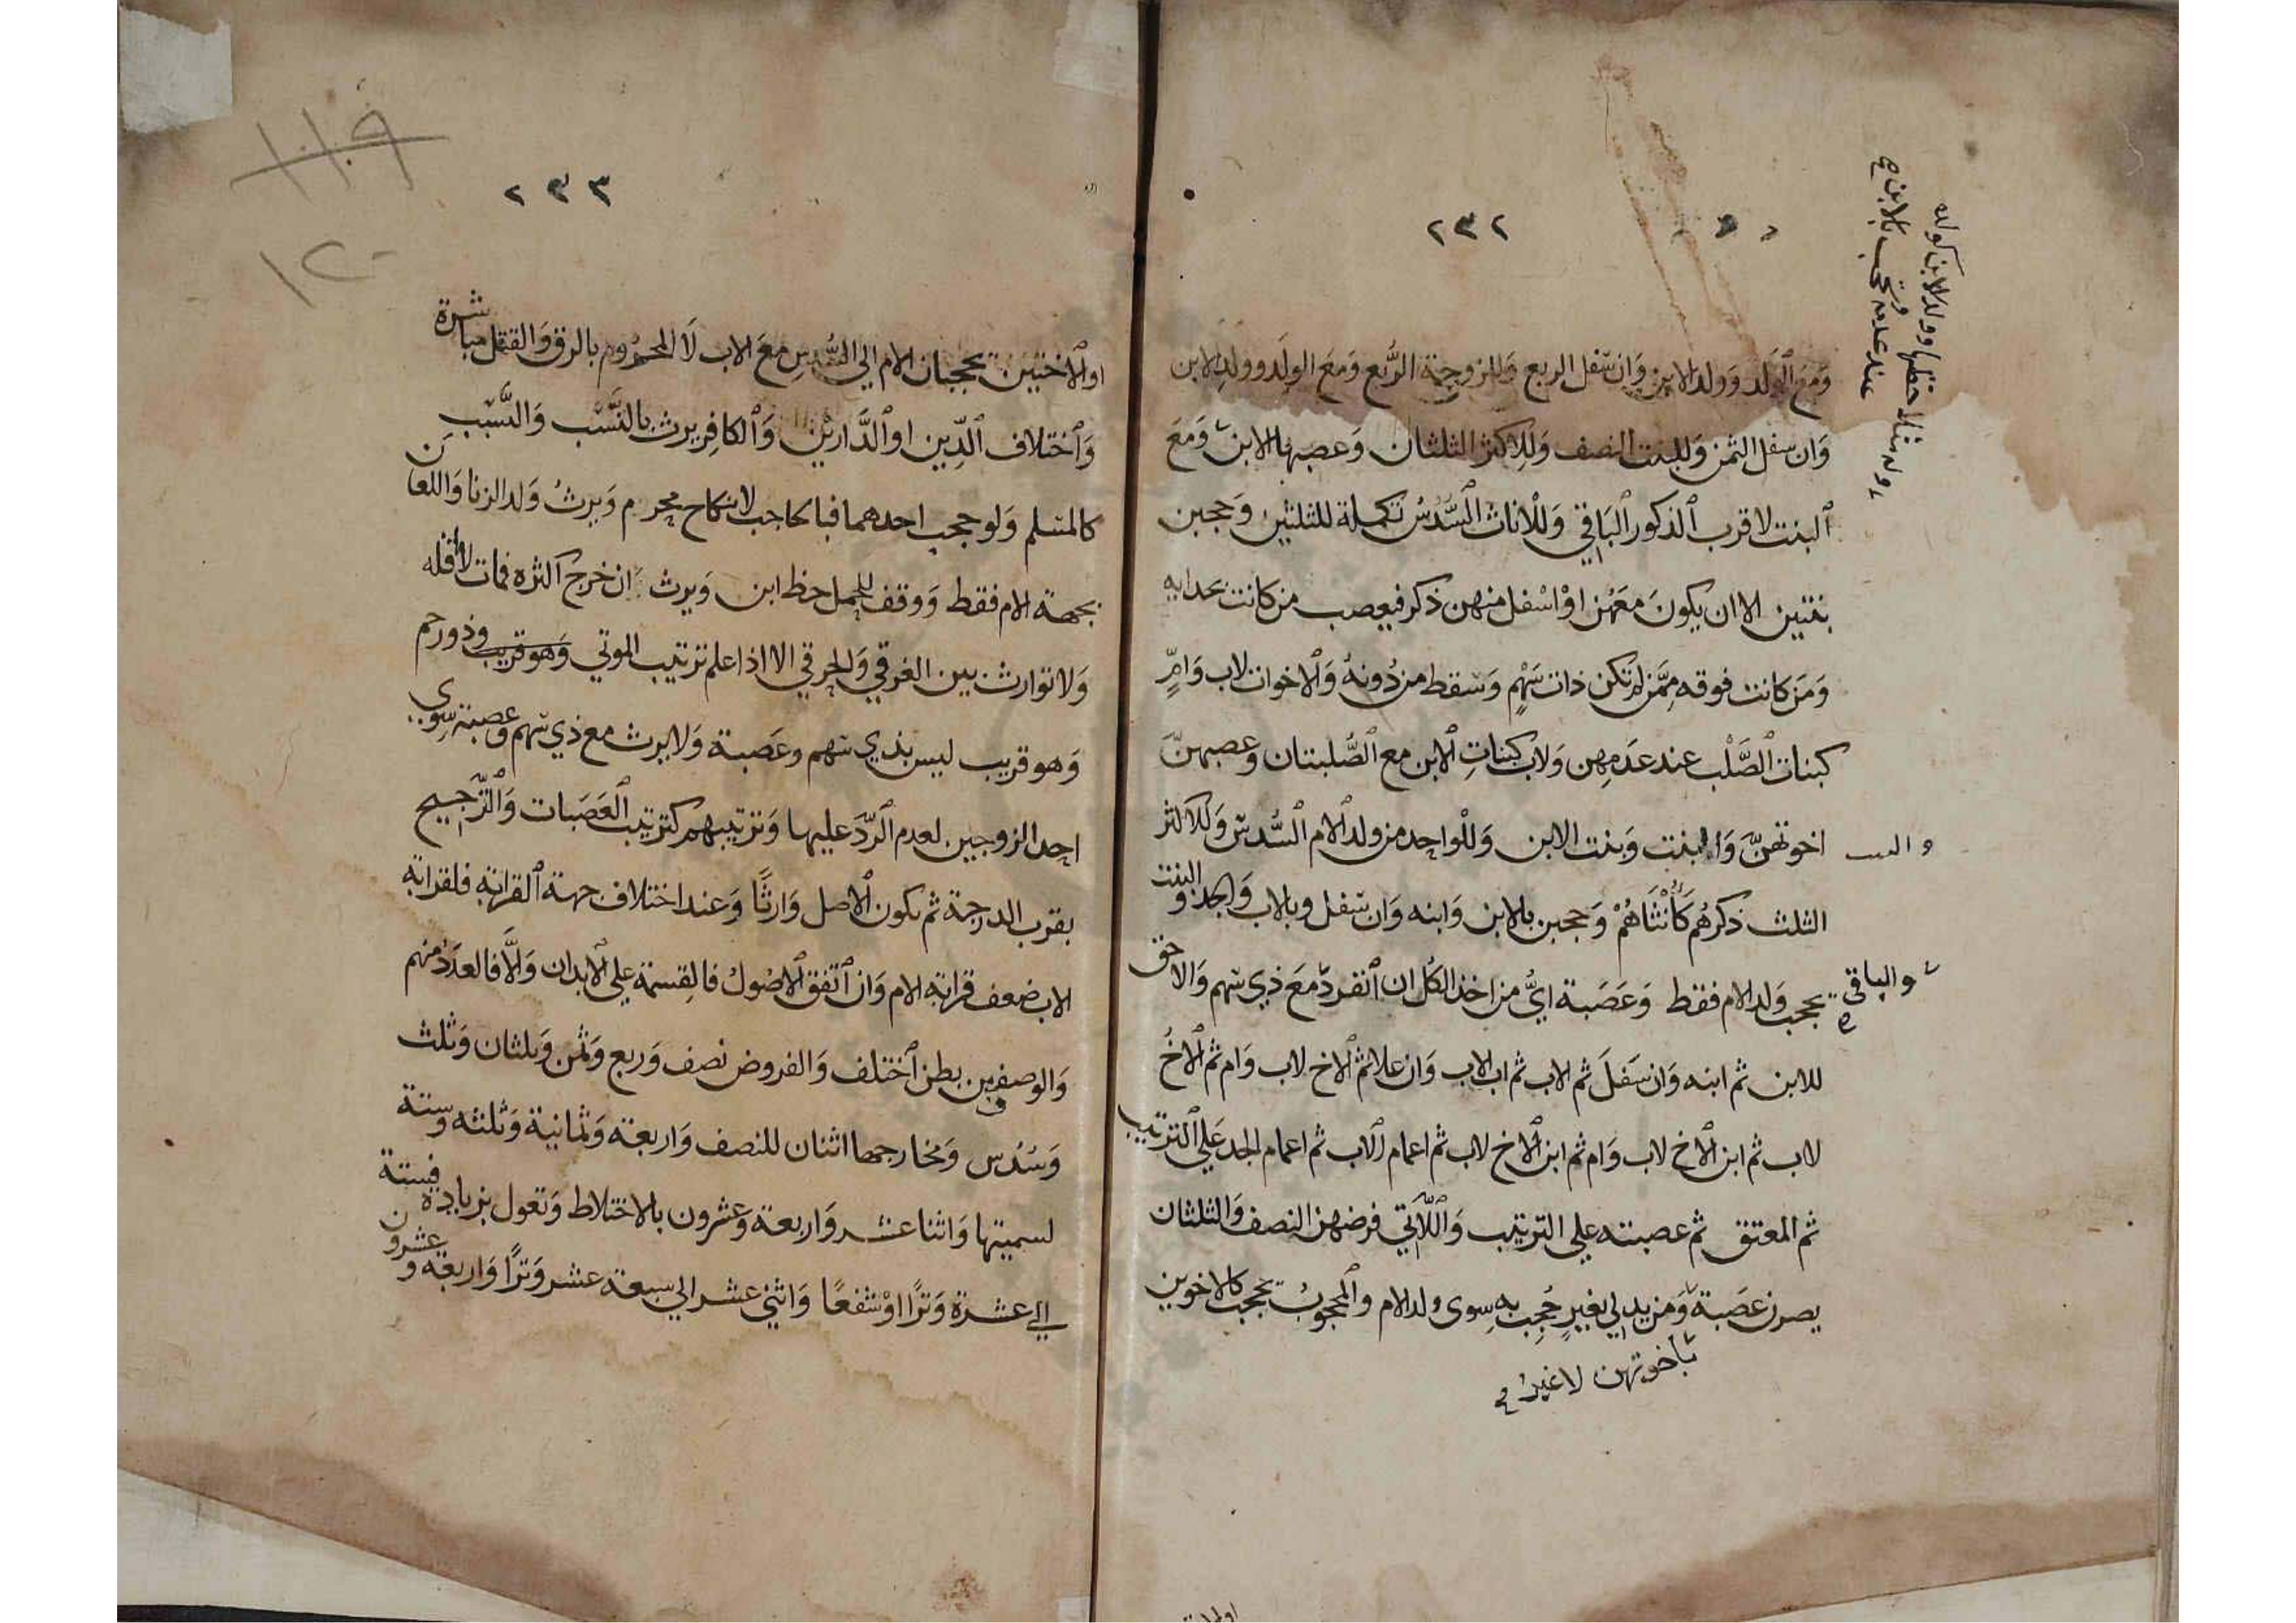 ٢٣٢
ومع الولد وولد الابن وان سفل الربع وللزوجة الربع ومع الولد وولد الابن
وان سفل الثمن وللبنت النصف وللاكثر الثلثان وعصبها الابن ومع
البنت لاقرب الذكور الباقي وللاناث السُّدسُ تكملة للثلثين وحجبن
بنتين الا ان يكونَ معَهُن اوْ اسْفل منهن ذكر فيعصب من كانت بحذايه
وَمَن كانت فوقه مِمَّن لم تكن ذات سَهْمٍ وَسَقط من دُونهُ وَالاخوات لاب وَامٍّ
كبنات الصَّلْب عند عَدَمِهن وَلاب كبناتِ الابن مع الصُّلبتان وعصبهنّ
اخوتهنَّ وَالبنت وَبنت الابن وَللْواحِد من ولد الام السُّدس وَللاكثر
والبنت
الثلث ذكرهُم كَأُنْثَاهُمْ وَحجبن بالابن وَابنه وَان سَفل وبالاب وَالجد والبنت
يحجب وَلد الام فقط وَعَصَبة ايُّ من اخذ الكُل ان انفرد مَعَ ذي سَهم وَالاحق
والباقي
للابن ثم ابنه وَان سَفلَ ثم الاب ثم اب الاب وَان علا ثم الاخ لاب وَام ثم الاخُ
لاب ثم ابن الاخ لاب وَام ثم ابن الاخ لاب ثم اعمام الاب ثم اعمام الجد عَلي الترتيب
ثم المعتق ثم عصبته علي الترتيب وَاللّاتي فرضهن النصف وَالثلثان
يصرن عَصَبة وَمن يدلي بغيرٍ حُجِبَ به سِوى ولد الام وَالمحجوبُ يحجب كالاخوين
باخوتهن لا غير
٢٣٣
١١٩
١٢٠
او الاختين يحجبان الام الي السُّدسِ معَ الاب لَا المحرُوم بالرق وَالقتل مباشرة
وَاختلاف الدِّين او الدَّارين وَالكافِر يرث بالنَّسَب وَالسَّبَبِ
كالمسلم وَلو حجب احدهما فبالحاجب لا بنكاح محرم وَيرثُ وَلد الزنا وَاللعان
بجهة الام فقط وَوقف للحمل حظ ابن وَيرث ان خرج اكثره فمات لا اقله
وَلا توارث بين الغرقي وَالحرقي الا اذا علم ترتيب الموتي وذو رحم
وَهو قريب ليس بذي سَهم وعَصَبة وَلا يرث مع ذي سَهم وعصبة سِوى
احد الزوجين لعدم الرّدّ عليهما وَترتيبهم كترتيب العَصَبات وَالتّرجيح
بقرب الدرجة ثم بكون الاصل وَارثًا وَعند اختلاف جهة القرابة فلقرابة
الاب ضعف قرابة الام وَان اتفق الاصُول فالقِسمة علي الابدان وَالَّا فالعدَدُ منهم
وَالوصف من بطن اختلف وَالفروض نصف وَربع وَثمن وَثلثان وَثلث
وَسُدُس وَمخارجها اثنان للنصف وَاربعة وَثمانية وَثلثه وستة
لسميتها وَاثنا عشر وَاربعة وَعشرون بالاختلاط وَتعول بزيادة فستة
الي عشرة وَترًا اوْ شفعًا وَاثني عشر الي سبعة عشر وَترًا وَاربعة وعشرون